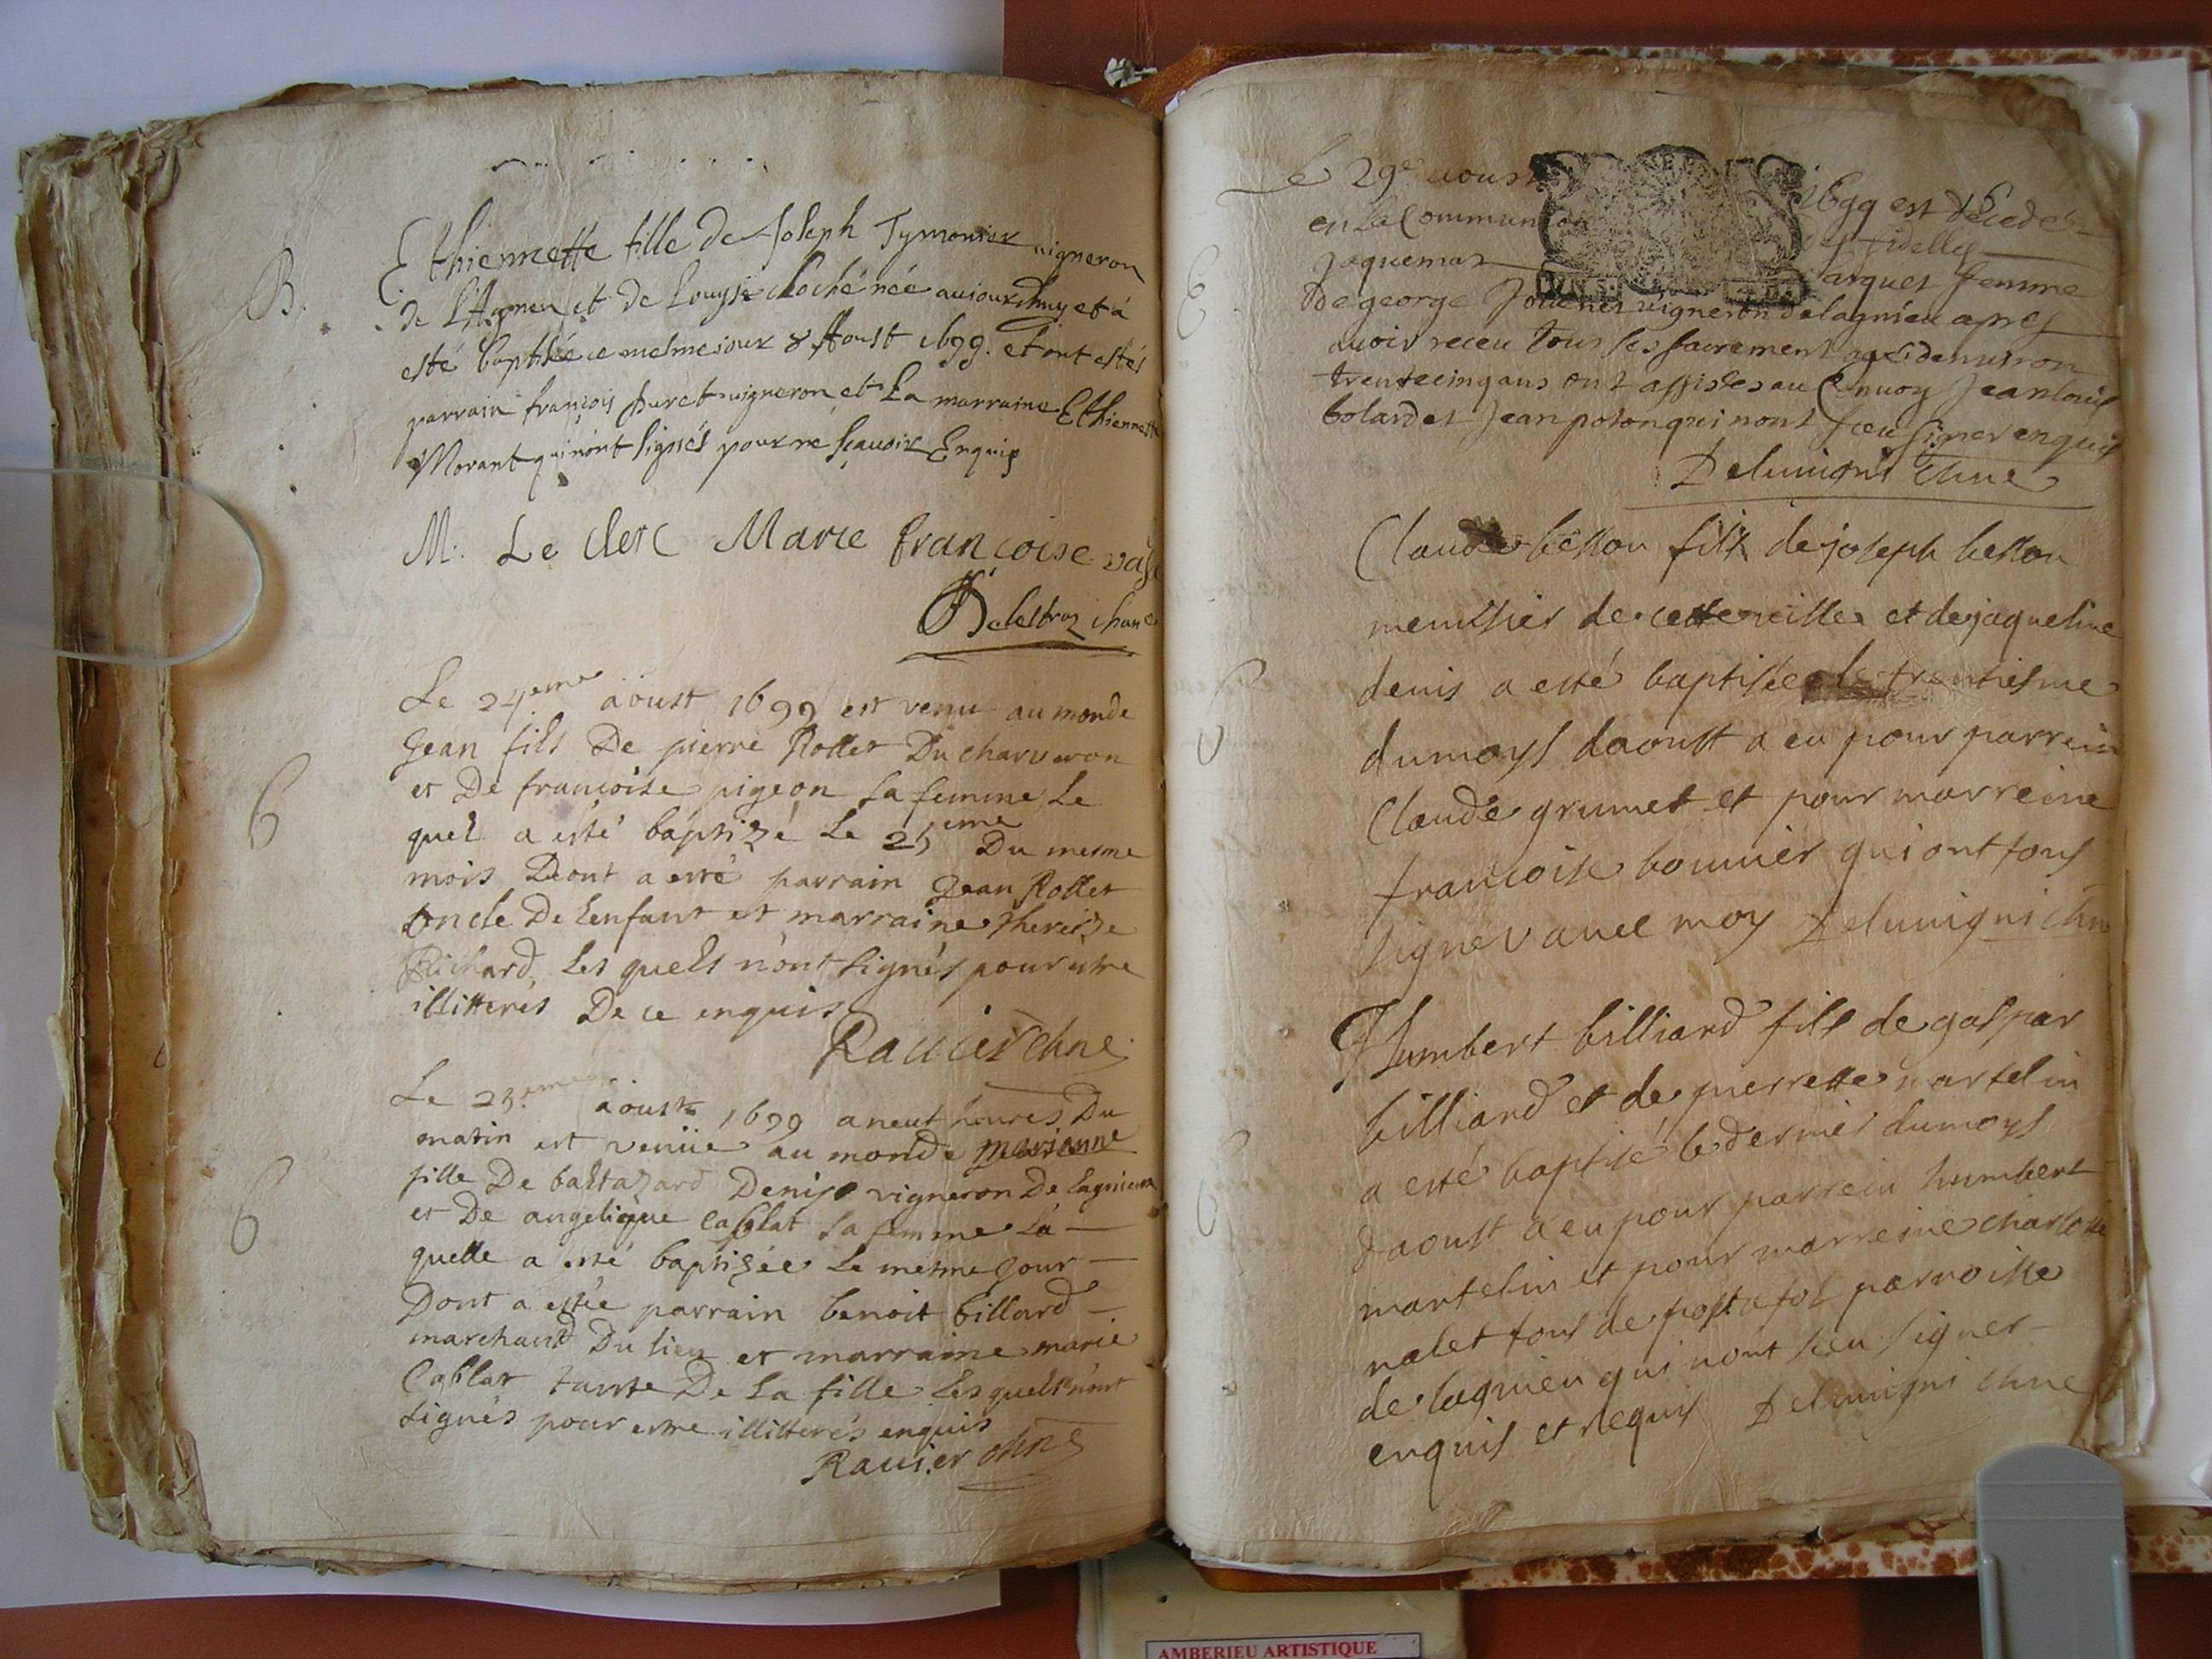 B.
Ethiennette fille de Joseph Tymonier vigneron
de L'Agneu et de Louyse cloché née aujourdhuy et à
esté baptisé ce mesme jour 8 Aoust 1699. et ont estés
parrain françois puret vigneron et La marraine Ethiennette
Morant qui n'ont signés pour ne sçauoir Enquis
M. Le clerc Marie françoise
Delestraz chane
Le 24eme aoust 1699 est venu au monde
Jean fils De pierre Rollet Du charveron
et De françoise pigeon sa femme Le
6
quel a esté baptizé Le 25eme Du mesme
mois Dont a esté parrain Jean Rollet
oncle De Lenfant et marraine thereize
Richard Les quels n'ont signés pour estre
illitterés De ce enquis
Rauier chne
Le 25eme aoust 1699 a neuf heures Du
matin est venüe au monde marianne
fille De baltazard Denise vigneron De Lagnieu
6
et De angelique Cablat sa femme La
quelle a esté baptizée Le mesme Jour
Dont a estée parrain benoit billard
marchand Du lieu et marraine marie
Cablat tante De La fille Les quels n'ont
signés pour estre illitterés enquis
Rauier chne
Le 29e aoust 1699 est décedé
en La Communion fidelles
Jaquema Jarquet femme
E
de george vigneron de lagnieu apres
auoir receu tous ses sacrement agé denuiron
trente cinq ans ont assistes au Conuoy Jean louis
bolard et Jean poton qui nont sceu signer enquis
Deluuigni chne
Claude besson fils de joseph besson
menusier de cette ville et de jaqueline
denis a esté baptisée le trentiesme
6
dumoys daoust a eu pour parrein
Claude grumet et pour marreine
francoise bouuier qui ont tous
signer auec moy Deluuigni chne
Humbert billiard fils de gaspar
billiard et de pierrette martelin
a esté baptisé le dernier dumoys
6
daoust a eu pour parrein humbert
martelin et pour marreine charlotte
nalet tous de postafol parroisse
de lagnieu qui nont sceu signer
enquis et requis Deluuigni chne
AMBERIEU ARTISTIQUE